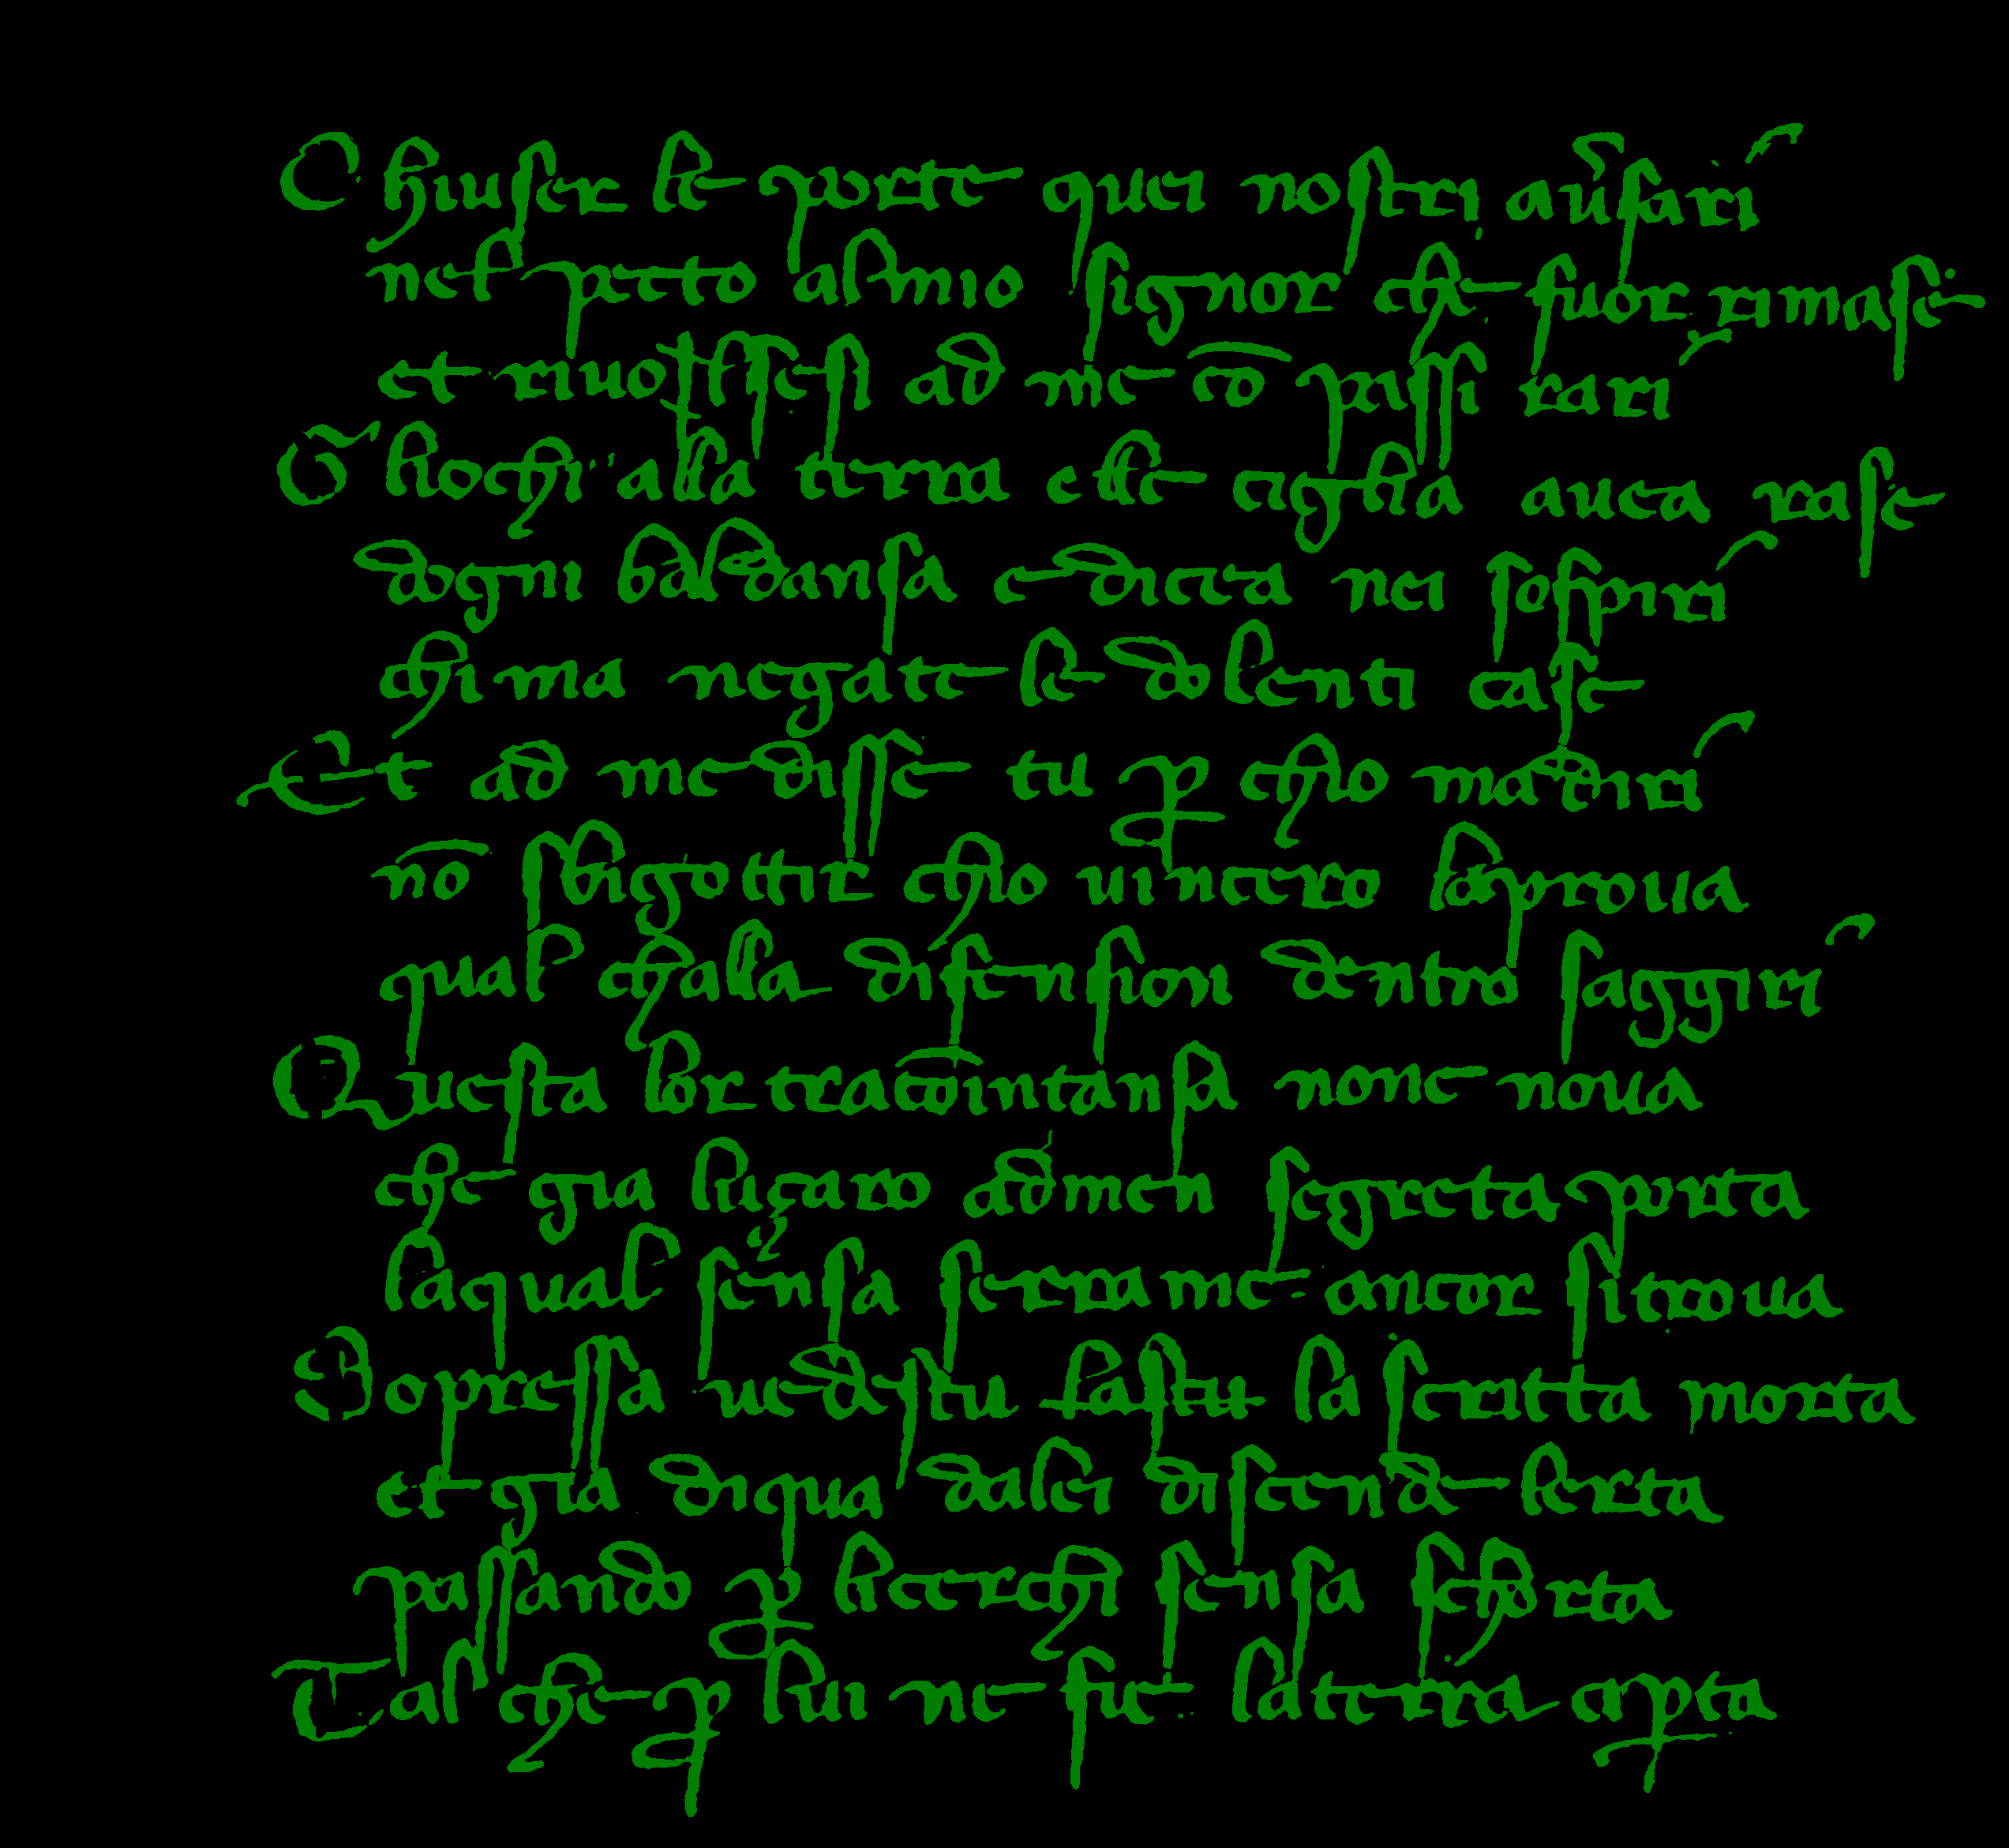 Chiuser le porte quei nostri auersari
nel petto almio signor che fuor rimase
et riuolsesi ad me cō passi rari
Gliochi alla terra elle ciglia auea rase
dogni baldansa e dicea nei sospiri
chima negate le dolenti case
Et ad me disse tu ꝑ chio madiri
nō sbigottir chio uincero laproua
qual challa difension dentro saggiri
Questa lor tracotantansa none noua
che gia luçaro admen segreta porta
laqual sensa serrame ancor sitroua
Sopressa uedestu la scritta morta
et gia diqua dalei discende lerta
passando ꝑ licerchi sensa schorta
Tal che ꝑ lui ne fie laterra aꝑta